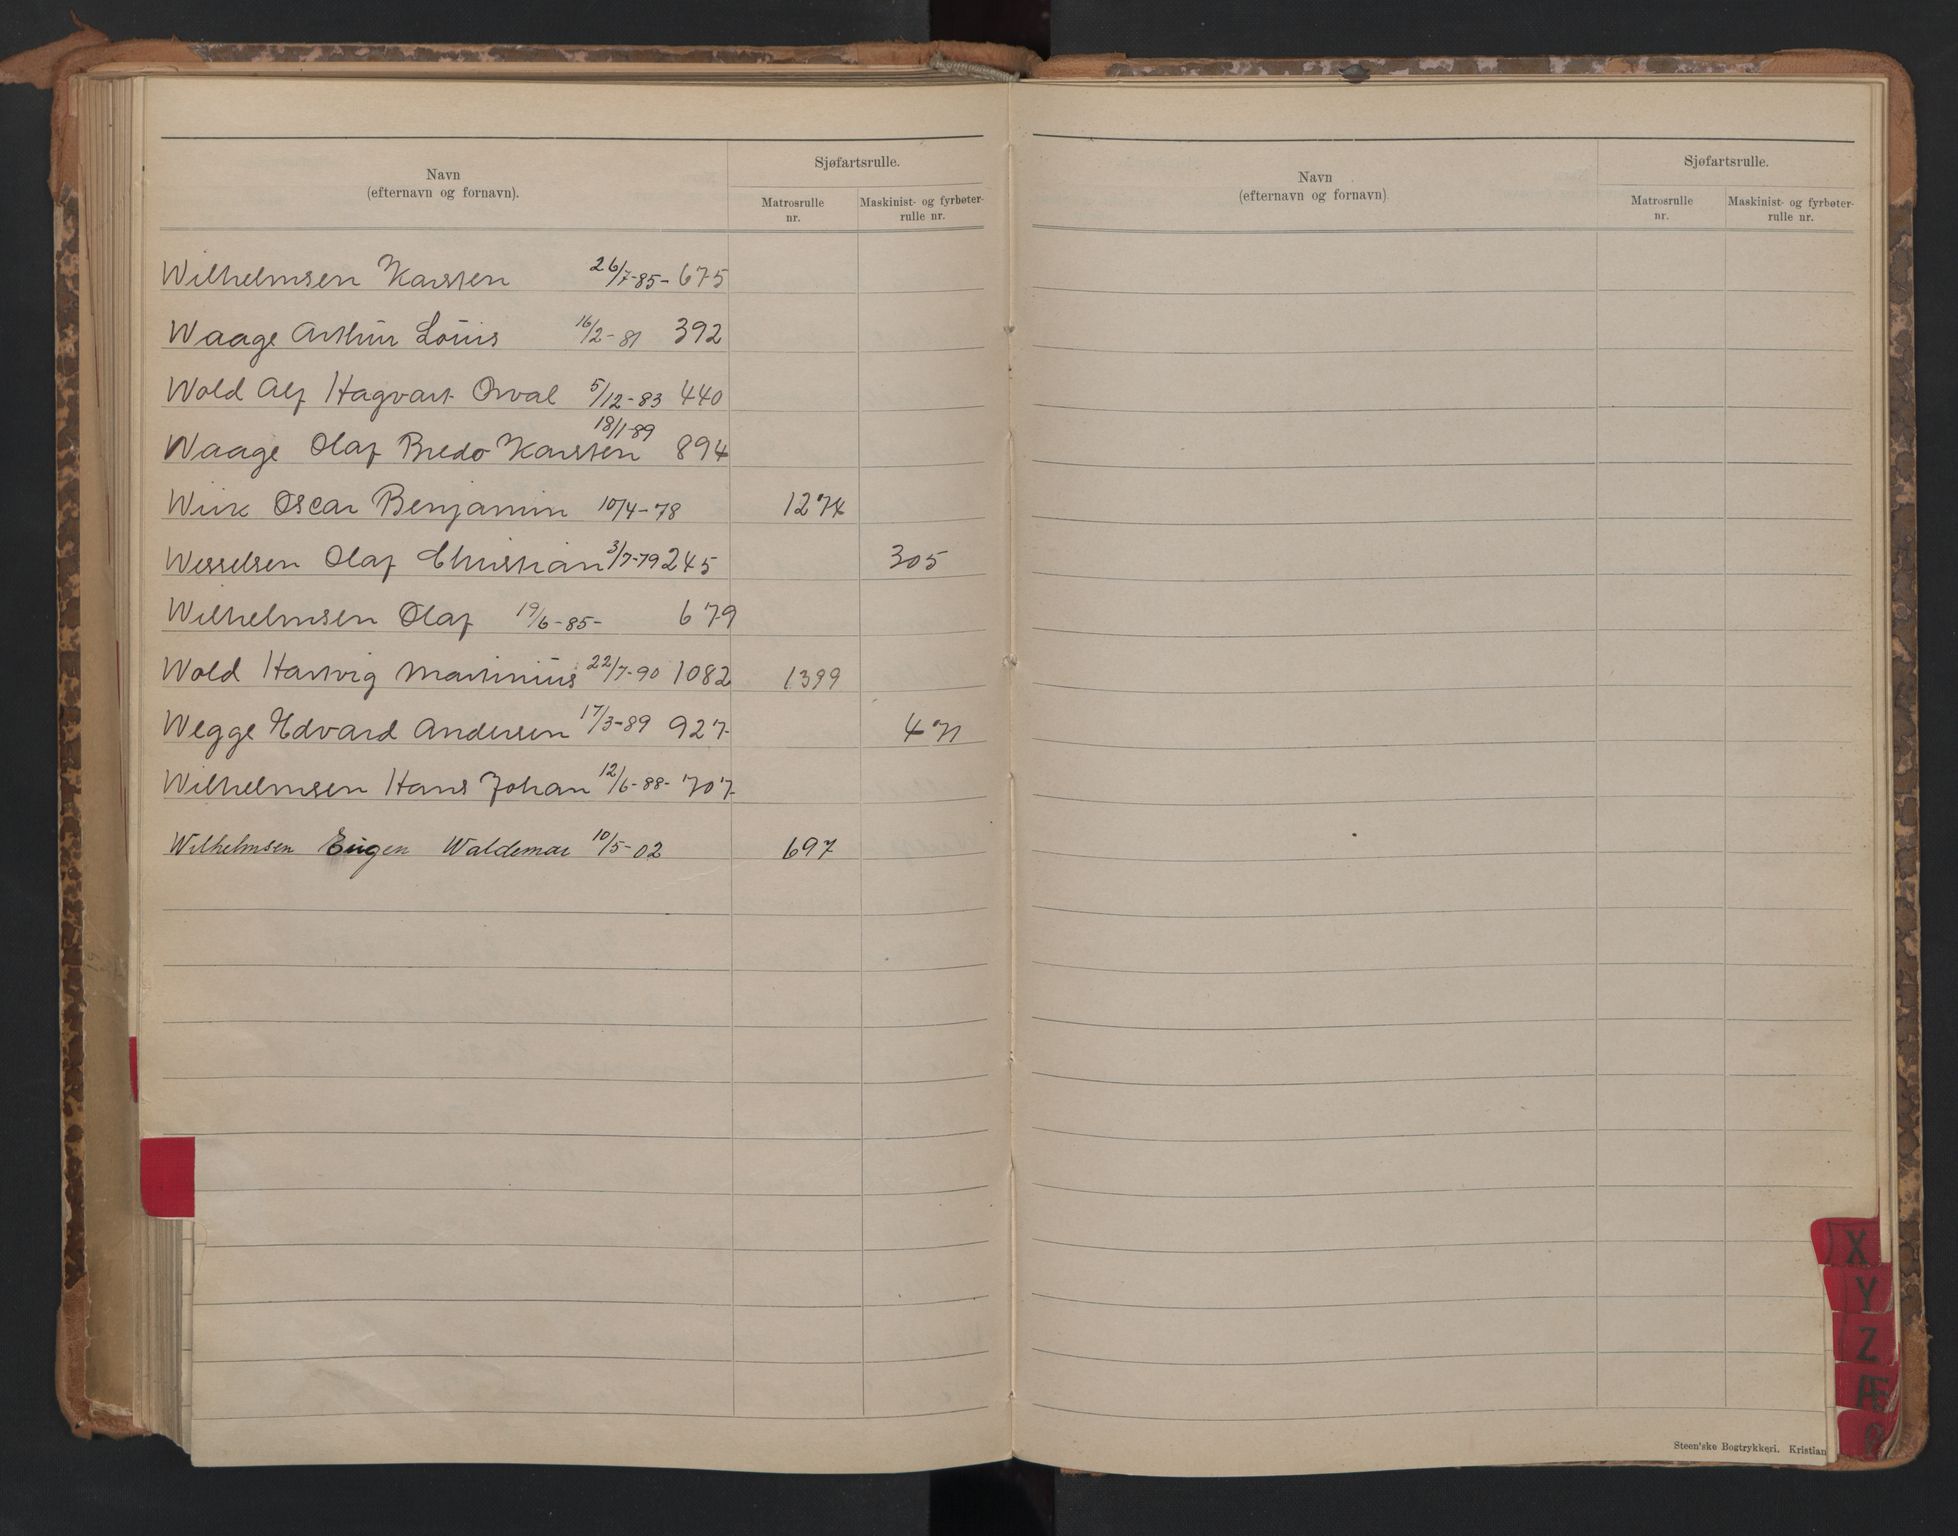 Navn
(efternavn og fornavn).
Sjøfartsrulle.
Matrosrulle nr.
Maskinist- og fyrbøter-rulle nr.
Wilhelmsen Karsten 26/7-85- 675
Waage Arthur Louis 16/2-81 392
Wold Alf Hagvart Orval 5/12-83 440
Waage Olaf Bredo Karsten 18/1-89 894
Wiik Oscar Benjamin 10/4-78 1274
Wesselsen Olaf Christian 3/7-79 245 305
Wilhelmsen Olaf 19/6-85- 679
Wold Hartvig Martinius 22/7-90 1082 1399
Wegge Edvard Andersen 17/3-89 927 471
Wilhelmsen Hans Johan 12/6-88- 707
Wilhelmsen Eugen Waldemar 10/5-02 697
Navn
(efternavn og fornavn)
Sjøfartsrulle.
Matrosrulle nr.
Maskinist- og fyrbøter-rulle nr.
X
Y
Z
Æ
Steen'ske Bogtrykkeri. Kristian